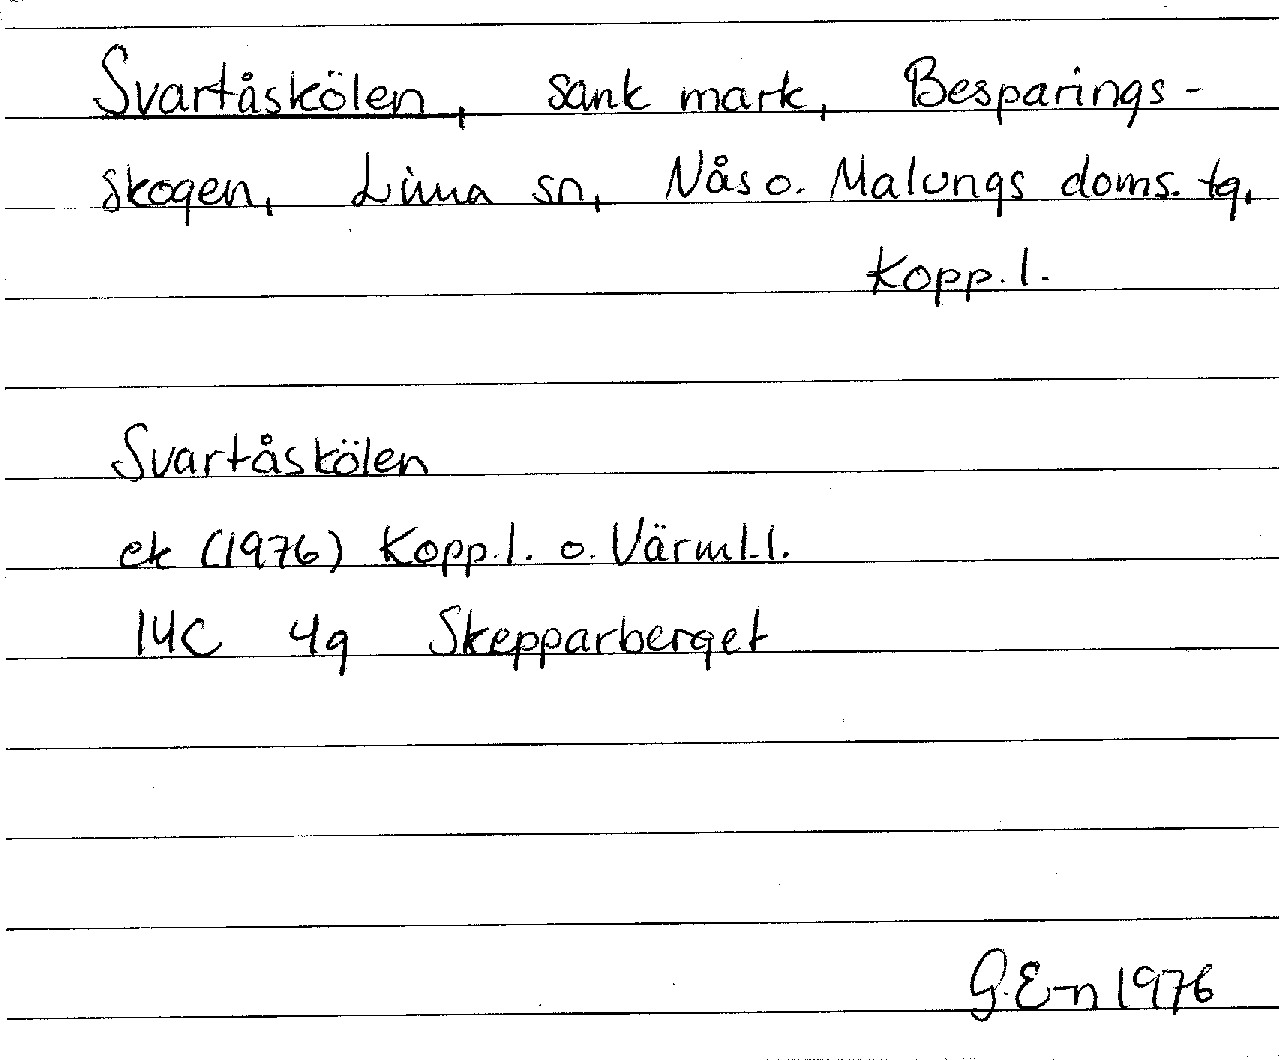 Svartåskölen, sank mark, Besparings-
skogen, Lima sn, Nås o. Malungs doms. tg,
Kopp. l.
Svartåskölen
ek (1976) Kopp. l. o. Värml. l.
14C 4g Skepparberget
G.E-n 1976